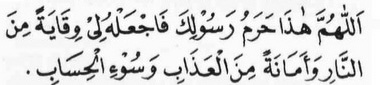 اَللّٰهُمَّ هٰذَا حَرَمُ رَسُوْلِكَ فَاجْعَلْهُ لِيْ وِقَايَةً مِنَ
النَّارِ وَأَمَانَةً مِنَ الْعَذَابِ وَسُوْءِ الْحِسَابِ.